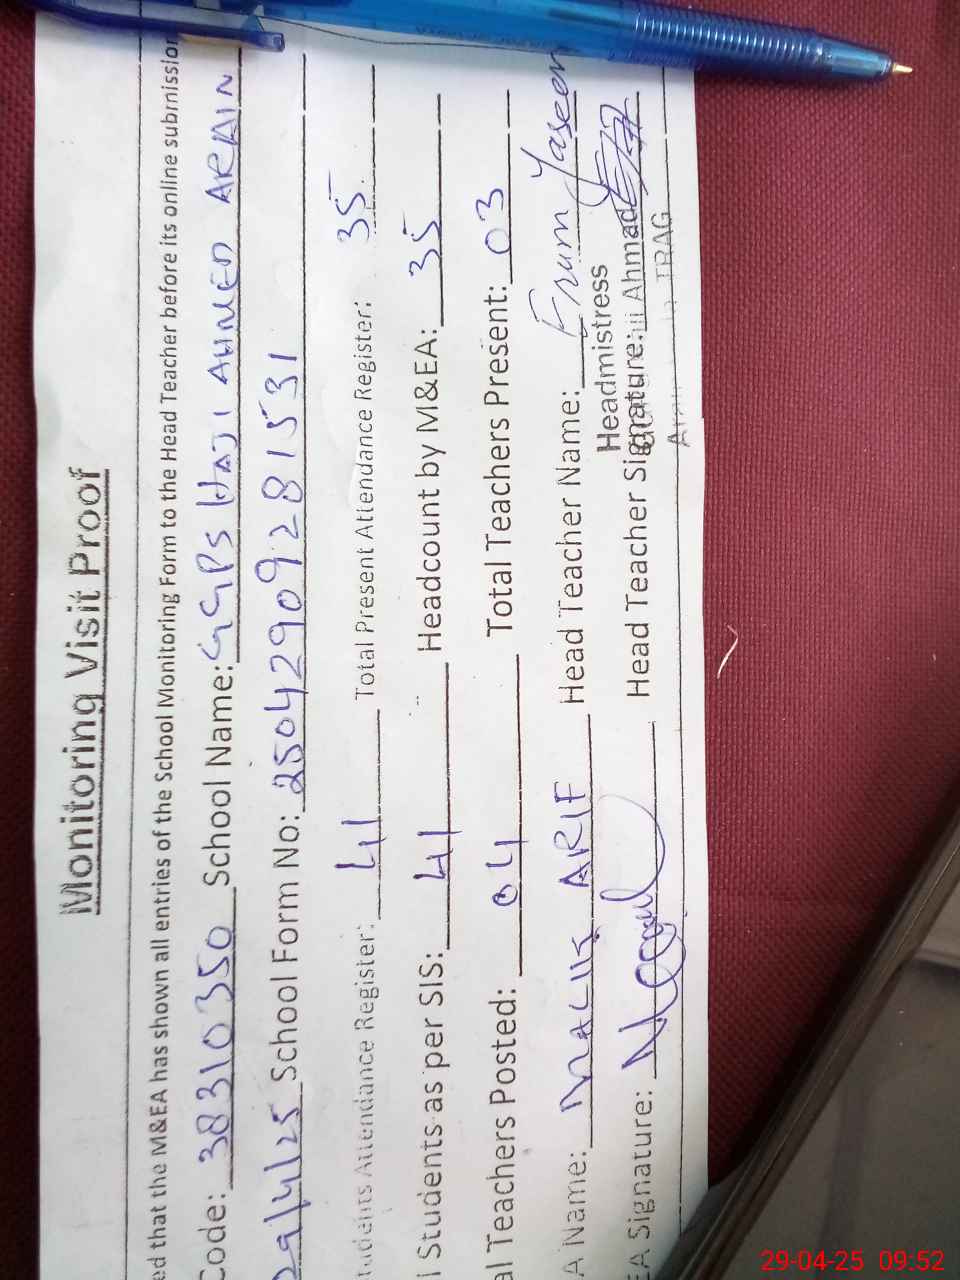 Monitoring Visit Proof
ed that the M&EA has shown all entries of the School Monitoring Form to the Head Teacher before its online submission
Code: 38310350 School Name: GGPS HAJI AHMED ARAIN
29/4/25 School Form No: 25042909281531
tudents Attendance Register: 41 Total Present Attendance Register: 35
l Students as per SIS: 41 Headcount by M&EA: 35
al Teachers Posted: 04 Total Teachers Present: 03
A Name: MALIK ARIF Head Teacher Name: Erum Yaseen
Headmistress
EA Signature: Head Teacher Signature: Ahmad
TRAG
29-04-25 09:52